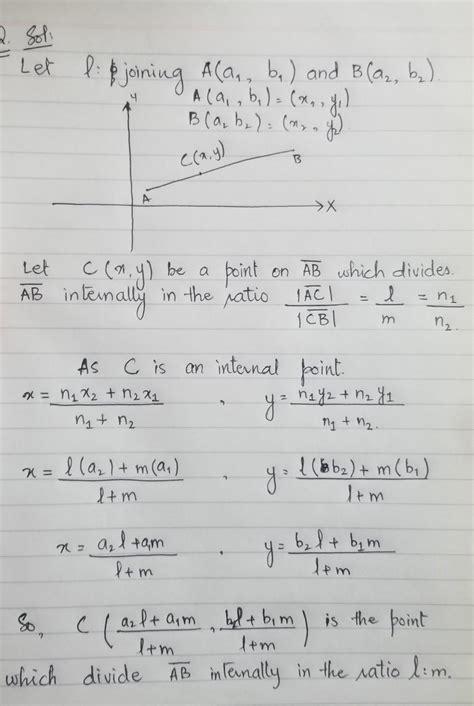 2. Sol:
Let l: joining A(a₁, b₁) and B(a₂, b₂).
A(a₁, b₁) = (x₁, y₁)
B(a₂ b₂) = (x₂, y₂)
y
C(x,y)
B
A
X
Let C(x,y) be a point on A̅B̅ which divides.
A̅B̅ internally in the ratio |A̅C̅|/|C̅B̅| = l/m = n₁/n₂.
As C is an internal point.
x = (n₁x₂ + n₂x₁)/(n₁ + n₂) , y = (n₁y₂ + n₂y₁)/(n₁ + n₂.)
x = (l(a₂) + m(a₁))/(l+m) , y = (l(b₂) + m(b₁))/(l+m)
x = (a₂l + a₁m)/(l+m) , y = (b₂l + b₁m)/(l+m)
So, C((a₂l + a₁m)/(l+m) , (b₂l + b₁m)/(l+m)) is the point
which divide A̅B̅ internally in the ratio l:m.